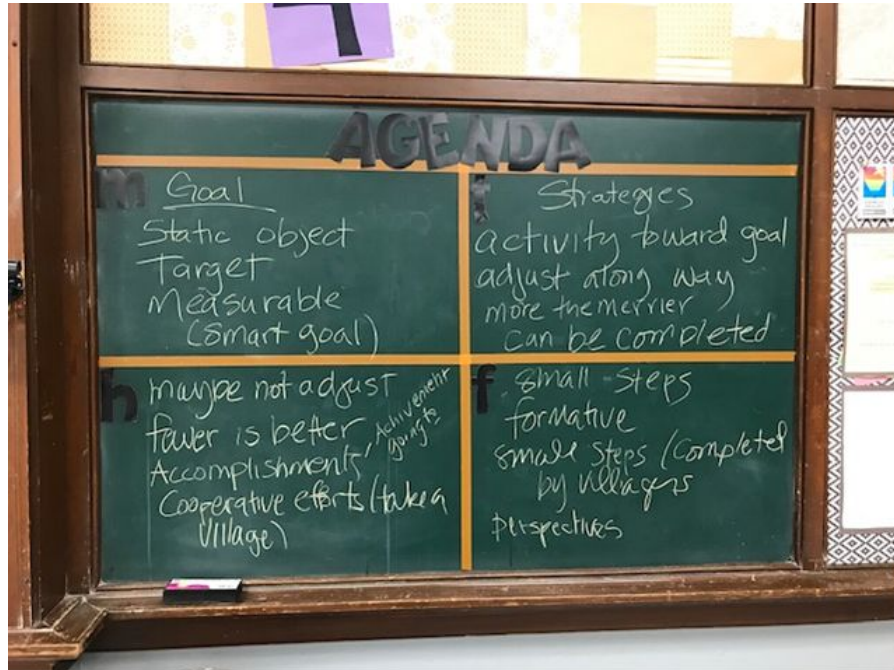 AGENDA
m
Goal
Static object
Target
Measurable
(smart goal)
t
Strategies
activity toward goal
adjust along way
more the merrier
can be completed
h
maybe not adjust
fewer is better
Accomplishments, Achivement
going to
Cooperative efforts (take a
village)
f
small steps
formative
small steps (completed
by villagers
perspectives